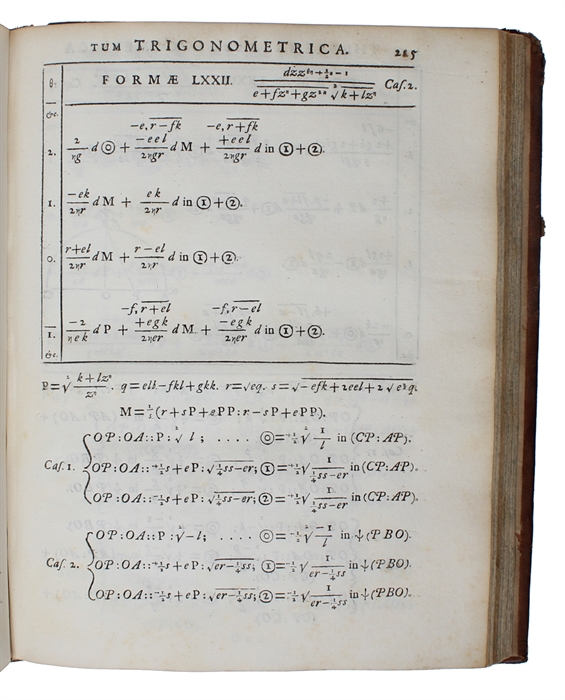 TUM TRIGONOMETRICA. 225
θ. FORMÆ LXXII. dżz^{θη+½η−1} / e+fz^η+gz^{2η} √k+lz^η Caſ.2.
&c.
−e, r−fk −e, r+fk
2. 2/ηg d⓪ + −eel/2ηgr dM + +eel/2ηgr d in ①+②.
1. −ek/2ηr dM + ek/2ηr d in ①+②.
0. r+el/2ηr dM + r−el/2ηr d in ①+②.
−f, r+el −f, r−el
1. −2/ηek dP + +egk/2ηer dM + −egk/2ηer d in ①+②.
&c.
P=√k+lz^η/z^η. q=ell−fkl+gkk. r=√eq. s=√−efk+2eel+2√e³q.
M=½(r+sP+ePP:r−sP+ePP).
OP:OA::P:√l; .... ⓪=−½√1/l in (CP:AP).
Caſ. 1. OP:OA::+½s+eP:√¼ss−er; ①=−½√1/¼ss−er in (CP:AP).
OP:OA::−½s+eP:√¼ss−er; ②=−½√1/¼ss−er in (CP:AP).
OP:OA::P:√−l; .... ⓪=−½√−1/l in ψ(PBO).
Caſ. 2. OP:OA::+½s+eP:√er−¼ss; ①=−½√1/er−¼ss in ψ(PBO).
OP:OA::−½s+eP:√er−¼ss; ②=−½√1/er−¼ss in ψ(PBO).